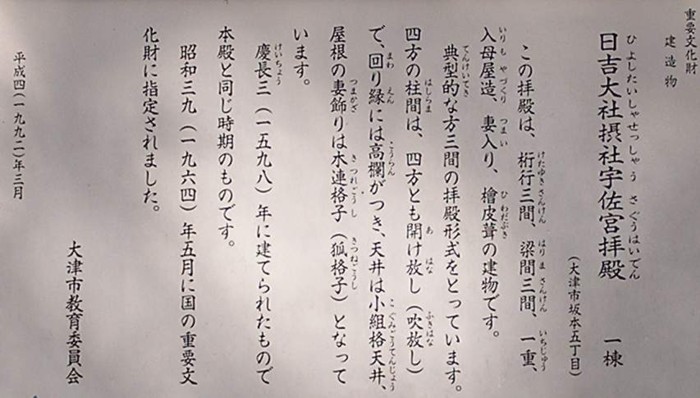 重要文化財
建造物
日吉大社摂社宇佐宮拝殿 一棟
(大津市坂本五丁目)
この拝殿は、桁行三間、梁間三間、一重、
入母屋造、妻入り、檜皮葺の建物です。
典型的な方三間の拝殿形式をとっています。
四方の柱間は、四方とも開け放し(吹放し)
で、回り縁には高欄がつき、天井は小組格天井、
屋根の妻飾りは木連格子(狐格子)となって
います。
慶長三(一五九八)年に建てられたもので
本殿と同じ時期のものです。
昭和三九(一九六四)年五月に国の重要文
化財に指定されました。
平成四(一九九二)年三月
大津市教育委員会